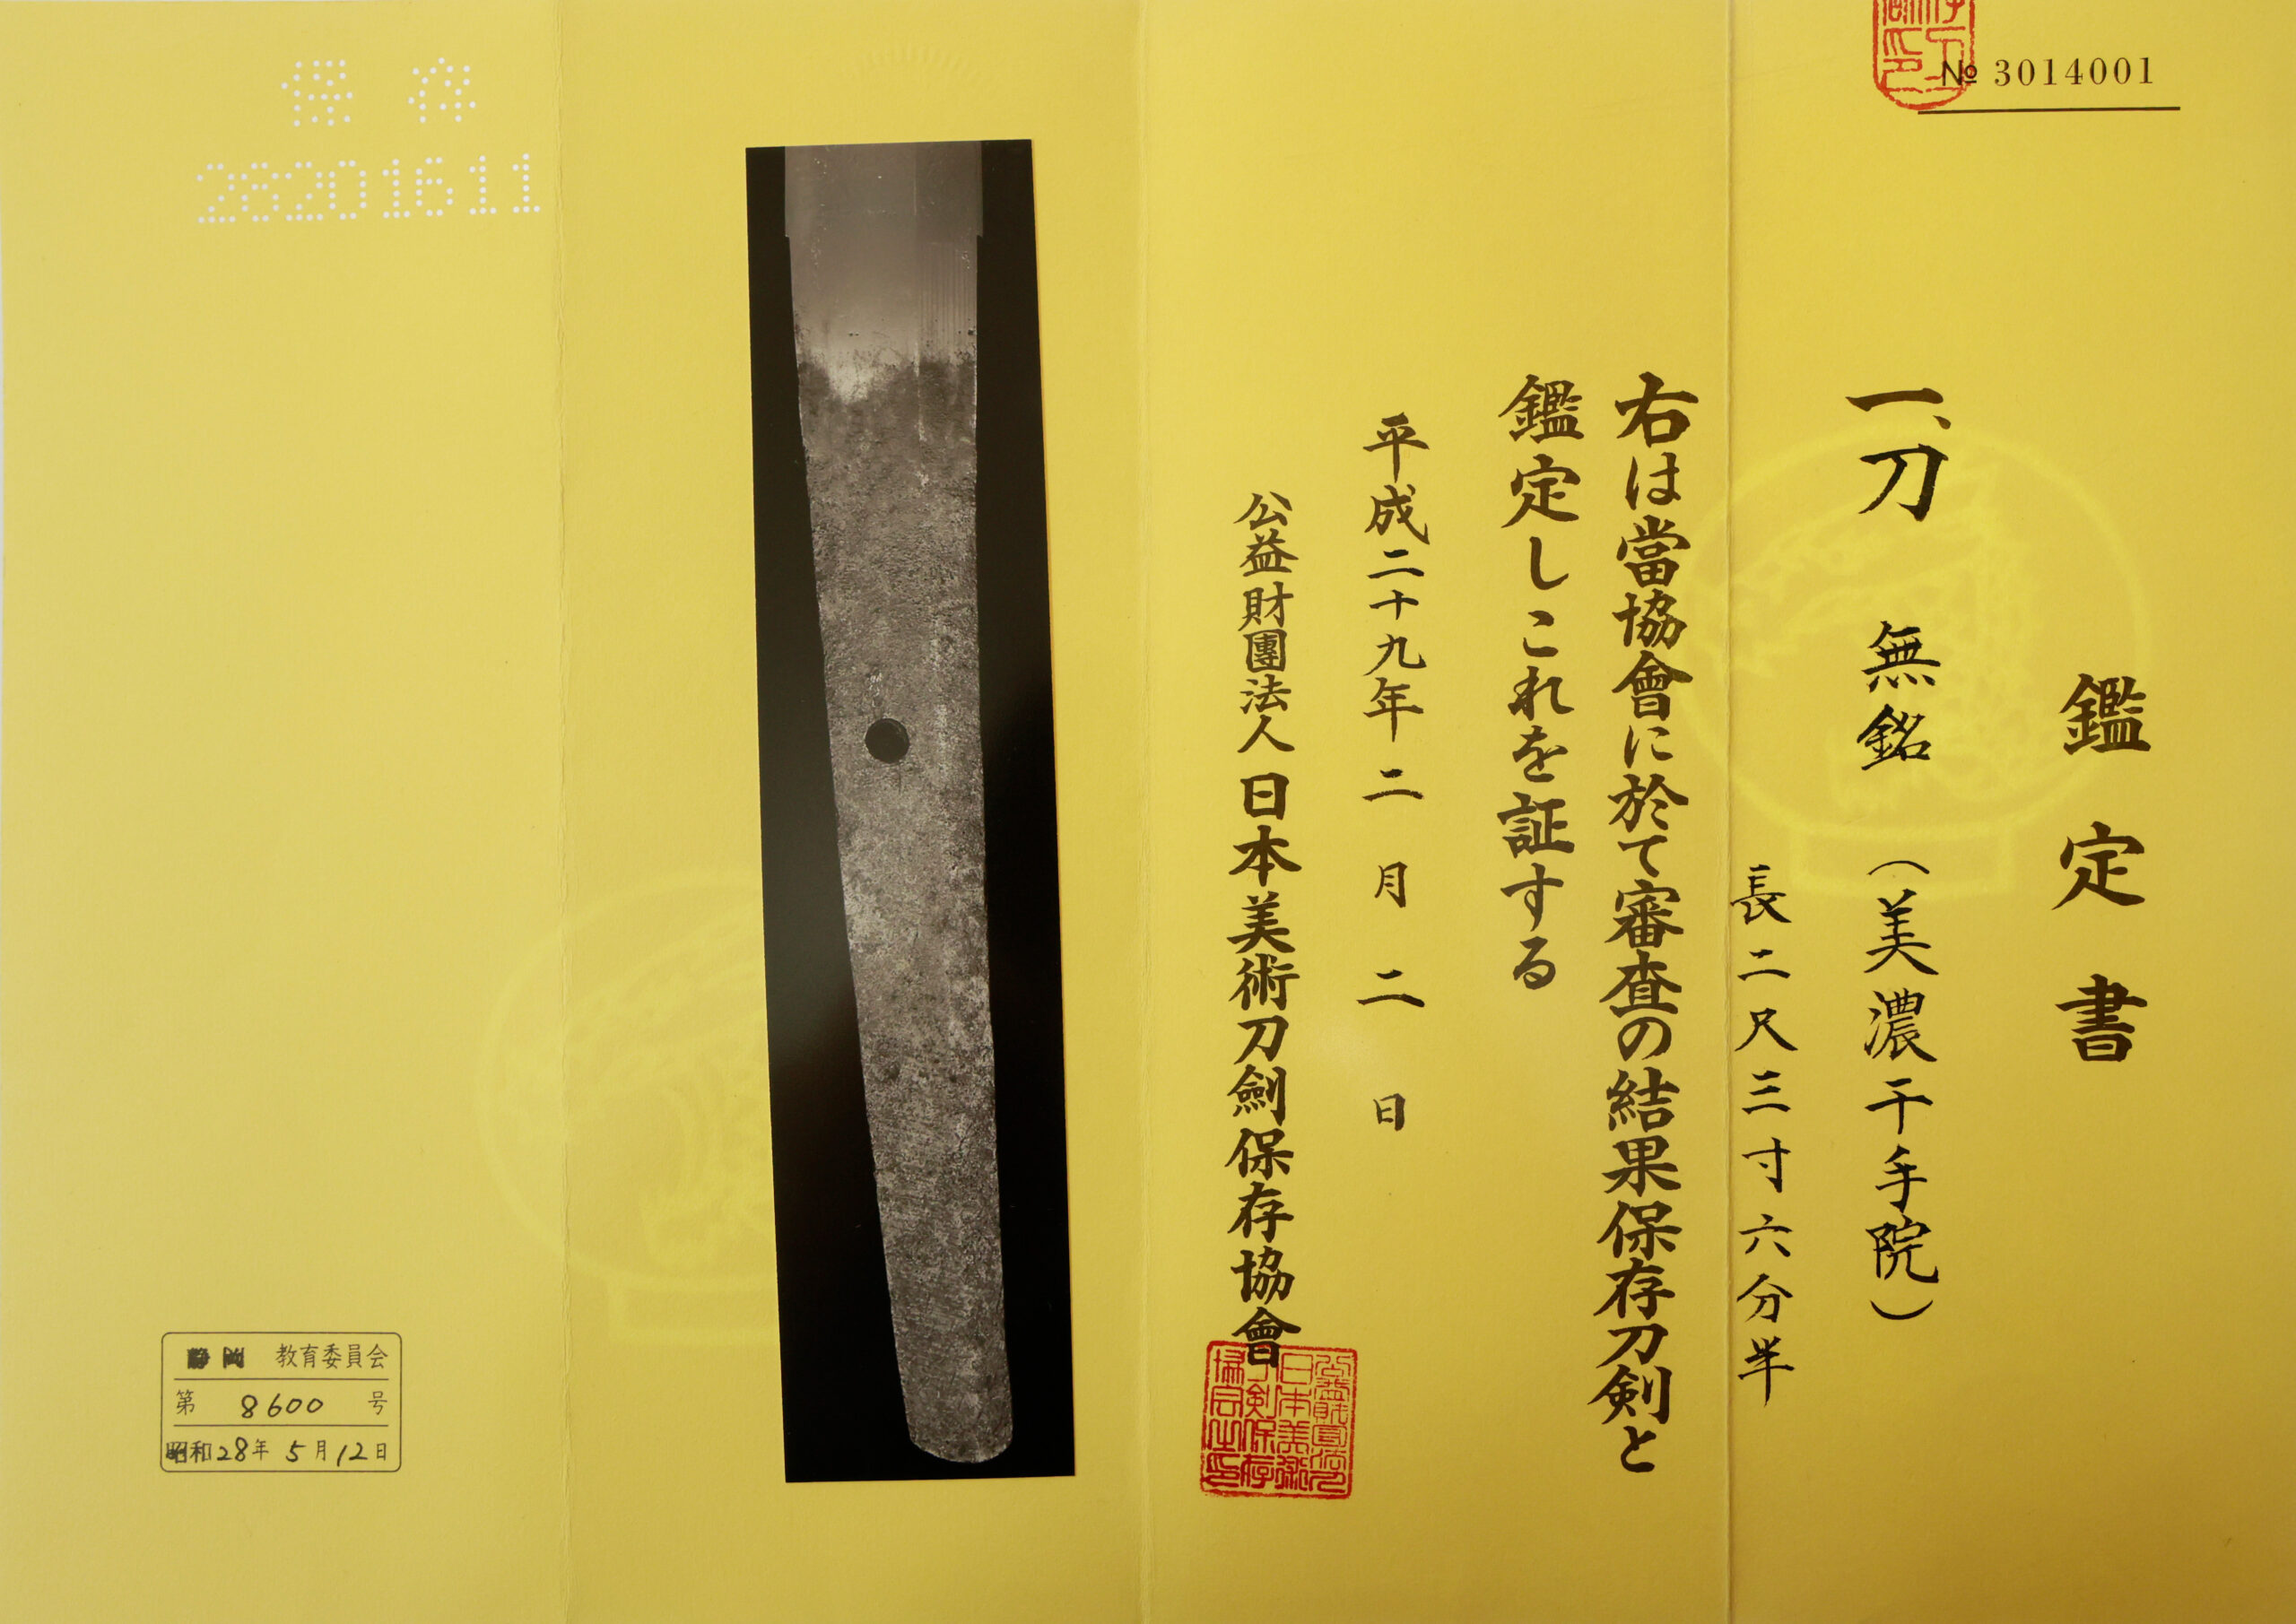 № 3014001
鑑定書
一、刀 無銘(美濃千手院)
長二尺三寸六分半
右は當協會に於て審査の結果保存刀剣と
鑑定しこれを証する
平成二十九年二月二日
公益財團法人日本美術刀劍保存協會
保存
28201611
静岡 教育委員会
第 8600 号
昭和28年 5月12日